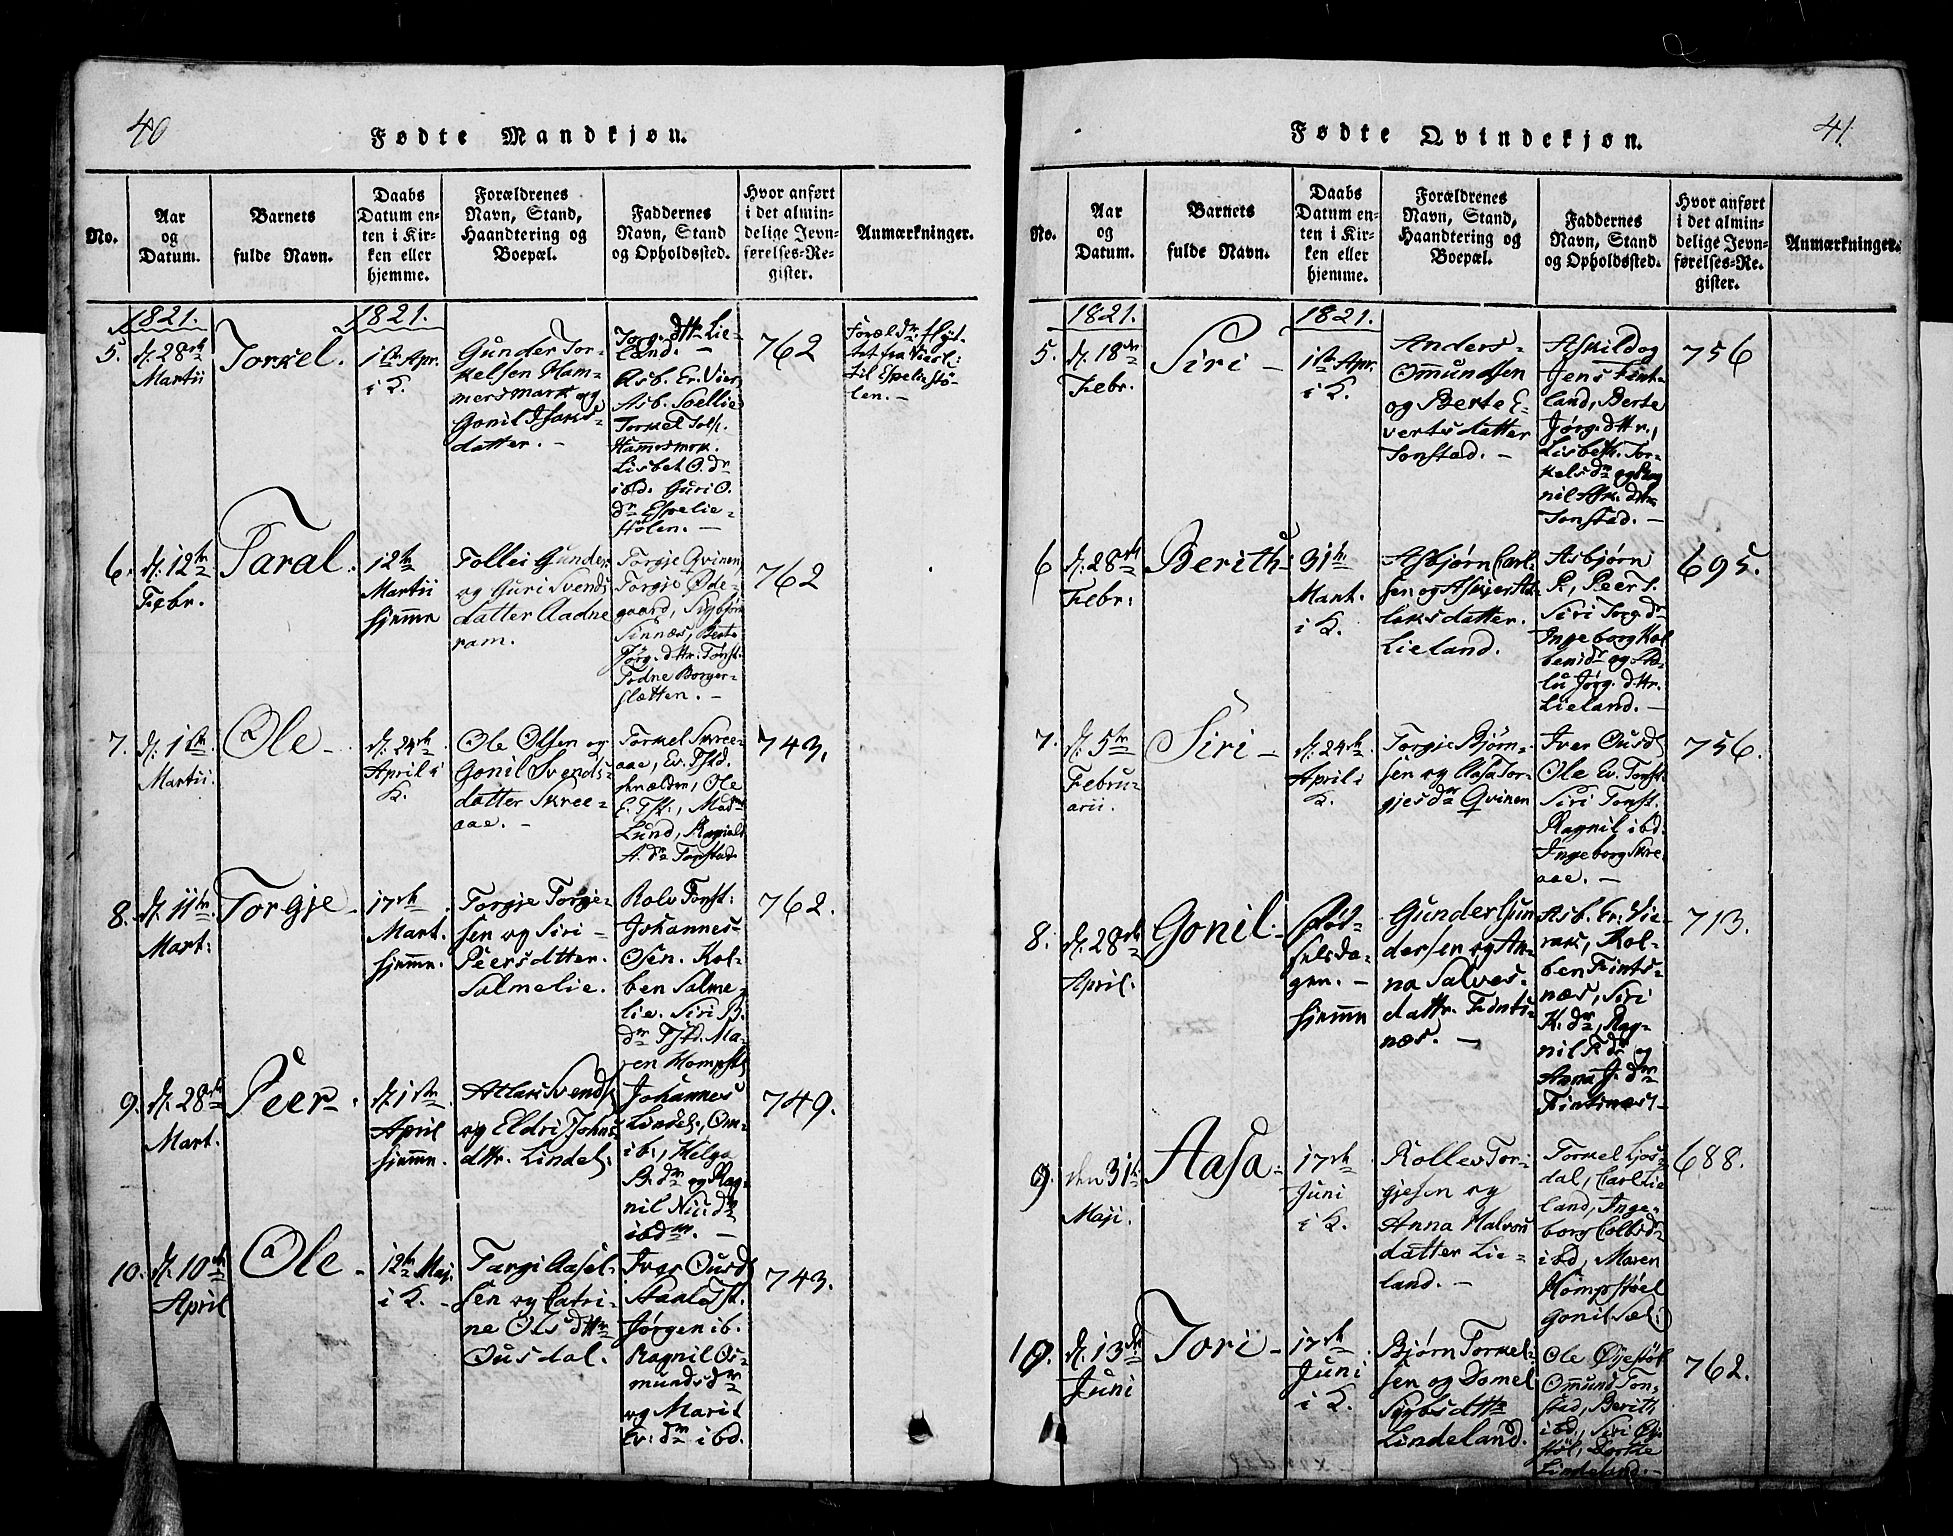 40
Fødte Mandkjøn.
No.
Aar
og
Datum.
Barnets
fulde Navn.
Daabs
Datum en-
ten i Kir-
ken eller
hjemme.
Forældrenes
Navn, Stand,
Haandtering og
Boepæl.
Faddernes
Navn, Stand
og Opholdssted.
Hvor anført
i det almin-
delige Jevn-
førelses-Re-
gister.
Anmærkninger.
1821.
1821.
5.
d. 28de
Martii
Torkel.
1ste Apr.
i K.
Gunder Tor-
kelsen Ham-
mersmark og
Gonil Isaks-
datter. -
Torg. dttr Lie-
land. -
Asb. Er. Vier
Asb. Soellie
Torkel Tols.
Lisbet O. dr
ibd. Guri O.
dr Espelie-
Stølen. -
762
Foræl dr. flyt-
tet fra Viers:
til Espeliestø-
len. -
6.
d. 12te
Febr.
Taral.
12te
Martii
hjemme
Tollei Gunders
og Guri Svends
datter Aadne
ram.
Torgje Qvinen
Torgje Øde-
gaard, Sigbjørn
Sinnæs, Berte
Jørg. dttr. Tonst.
Todne Borger-
slætten. -
762
7.
d. 1ste
Martii.
Ole -
d. 24de
April i
K.
Ole Olsen og
Gonil Svends-
datter Skree-
aae. -
Torkel Skree-
aae, Ev. Tstd.
Ole
E. Tst.,
Lund, Ragnild
A. dr Tonstad
743.
8.
d. 11te
Mart:
Torgje -
17de
Mart.
hjemme.
Torgje Torgje-
sen og Siri -
Peersdatter.
Salmelie.
Rolv Tonst:
Johannes
Osen. Kol-
ben Salme-
lie. Siri B.
dr Tstd. Ma-
ren Hompst.
762.
9.
d. 28de
Mart.
Peer -
d. 1ste
April
hjemme.
Atlak Svends
og Eldri Johns
dttr. Lindel:
Johannes
Lindel., Om-
ib:, Helga
B. dr og Rag-
nil Nii dr
ibdm. -
749.
10.
d. 10de
April
Ole -
12te Maj.
i K. -
Targi Aasel-
sen og Catri-
ne Ols dttr
Ousdal.
Iver Ousd.
Jørgen ib.
Ragnil Os-
munds dr
og Marit
Ev: dr ibd.
743.
41.
Fødte Qvindekjøn.
No.
Aar
og
Datum.
Barnets
fulde Navn.
Daabs
Datum en-
ten i Kir-
ken eller
hjemme.
Forældrenes
Navn, Stand,
Haandtering og
Boepæl.
Faddernes
Navn, Stand
og Opholdssted.
Hvor anført
i det almin-
delige Jevn-
førelses-Re-
gister.
Anmærkninger.
1821.
1821.
5.
d. 18de
Febr.
Siri -
1ste Apr.
i K.
Anders -
Omundsen
og Berte E-
vertsdatter
Tonstad. -
Askild og
Jens Fint-
land, Berte
Jørg. dttr.,
Lisbeth Tor-
kels dr og Rag
nil Ask. dttr
Tonstad. -
756
6
d. 28de
Febr:
Berith -
31te
Mart.
i K.
Asbjørn Carl-
sen og Asgjer At-
laksdatter.
Lieland.
Asbjørn
P., Peer T.
Siri Torg dr
Ingeborg Kol
bens dr og
Jørg. dttr.
Lieland. -
695.
7.
d. 5te
Febru-
arii.
Siri -
d. 24de
April i
K.
Torgje Bjørn-
sen og Aasa Tor-
gjes dr Qvinen
Iver Ousd.
Ole Ev. Tonst.
Siri Tonst.
Ragnil ibd.
Ingeborg Skre-
aae. -
756.
8.
d. 28de
April.
Gonil -
Fød-
selsda-
gen. -
hjemme
Gunder Gun
dersen og An-
na Salves-
dattr. Fints-
næs. -
Asb. Er: Vie-
rak, Kol-
ben Fints-
næs, Siri
K. dr, Rag-
nil F. dr og
Anna J. dr
Fintsnæs. -
713.
9.
den 31te
Maji.
Aasa -
17de
Juni
i K.
Rollev Tor-
gjesen og
Anna Halvors
datter Lie-
land. -
Torkel Jos-
dal, Carl Lie
land, Inge-
borg Colbs dr
ibd, Maren
Hompstøl
Gonil Sæl.
688.
10.
d. 13de
Juni
Tori -
17de
Juni
i K.
Bjørn Torkel-
sen og Domel
Sigbs dttr
Lindeland.
Ole Øiestøl
Omund Ton-
stad, Berith
ibd., Siri Øi-
støl, Dorthe
Lindeland. -
762.